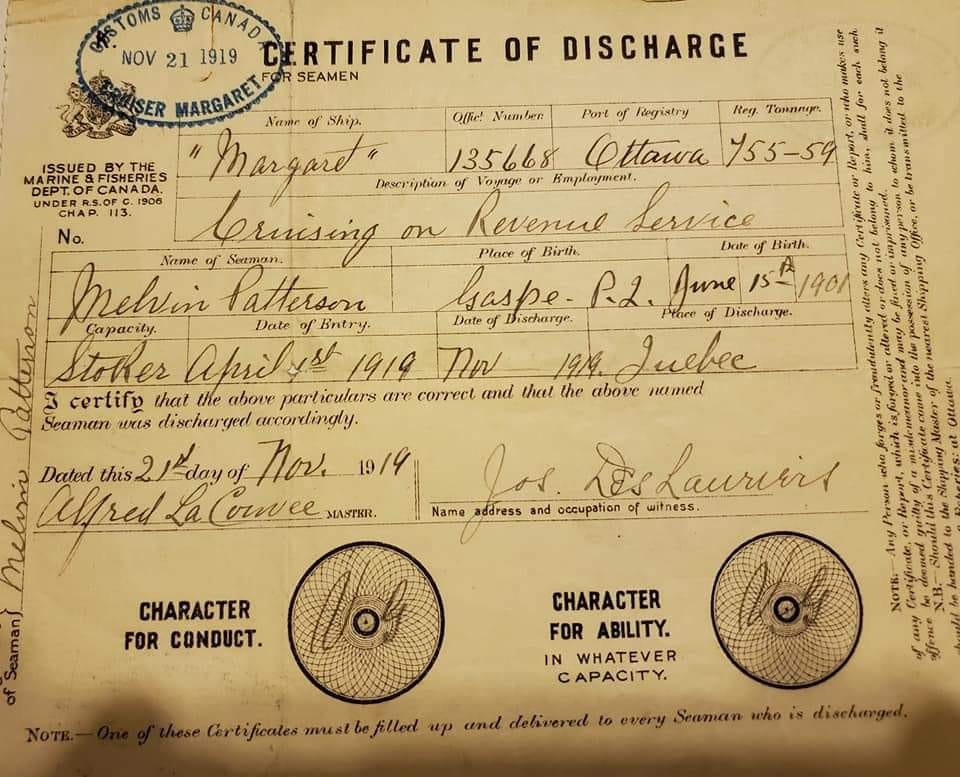 CUSTOMS CANADA
NOV 21 1919
CRUISER MARGARET
CERTIFICATE OF DISCHARGE
FOR SEAMEN
ISSUED BY THE
MARINE & FISHERIES
DEPT. OF CANADA.
UNDER R.S. OF C. 1906
CHAP. 113.
No.
Name of Ship. Offic! Number Port of Registry Reg. Tonnage.
"Margaret" 135668 Ottawa 755-59
Description of Voyage or Employment.
Cruising on Revenue Service
Name of Seaman. Place of Birth. Date of Birth.
Melvin Patterson Gaspe - P.Q. June 15th 1901
Capacity. Date of Entry. Date of Discharge. Place of Discharge.
Stoker April 1st 1919 Nov 1919. Quebec
I certify that the above particulars are correct and that the above named
Seaman was discharged accordingly.
Dated this 21st day of Nov. 1919
Alfred LaCouvee MASTER.
Jos. DesLauriers
Name address and occupation of witness.
CHARACTER
FOR CONDUCT.
CHARACTER
FOR ABILITY.
IN WHATEVER
CAPACITY.
NOTE.—One of these Certificates must be filled up and delivered to every Seaman who is discharged.
of Seaman} Melvin Patterson
NOTE.—Any Person who forges or fraudulently alters any Certificate or Report, or who makes use
of any Certificate, or Report, which is forged or altered or does not belong to him, shall for each such
offence be deemed guilty of a misdemeanor and may be fined or imprisoned.
N.B.—Should this Certificate come into the possession of any person to whom it does not belong it
should be handed to the Shipping Master of the nearest Shipping Office, or be transmitted to the
Fisheries: at Ottawa.